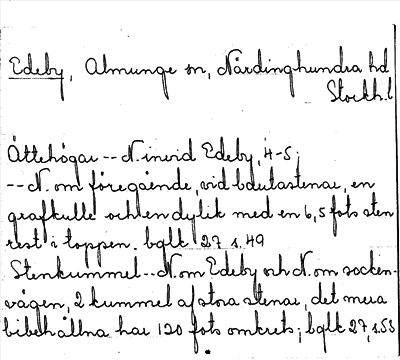 Edeby, Almunge sn, Närdinghundra hd
Stockh.l
Ättehögar -- N. invid Edeby, 4-5;
-- N. om föregående, vid bautastenar, en
grafkulle och en dylik med en 6,5 fots sten
rest i toppen. bglk 27 s. 49
Stenkummel -- N. om Edeby och N. om socken-
vägen, 2 kummel af stora stenar, det mera
bibehållna har 120 fots omkrets; bglk 27, s. 53